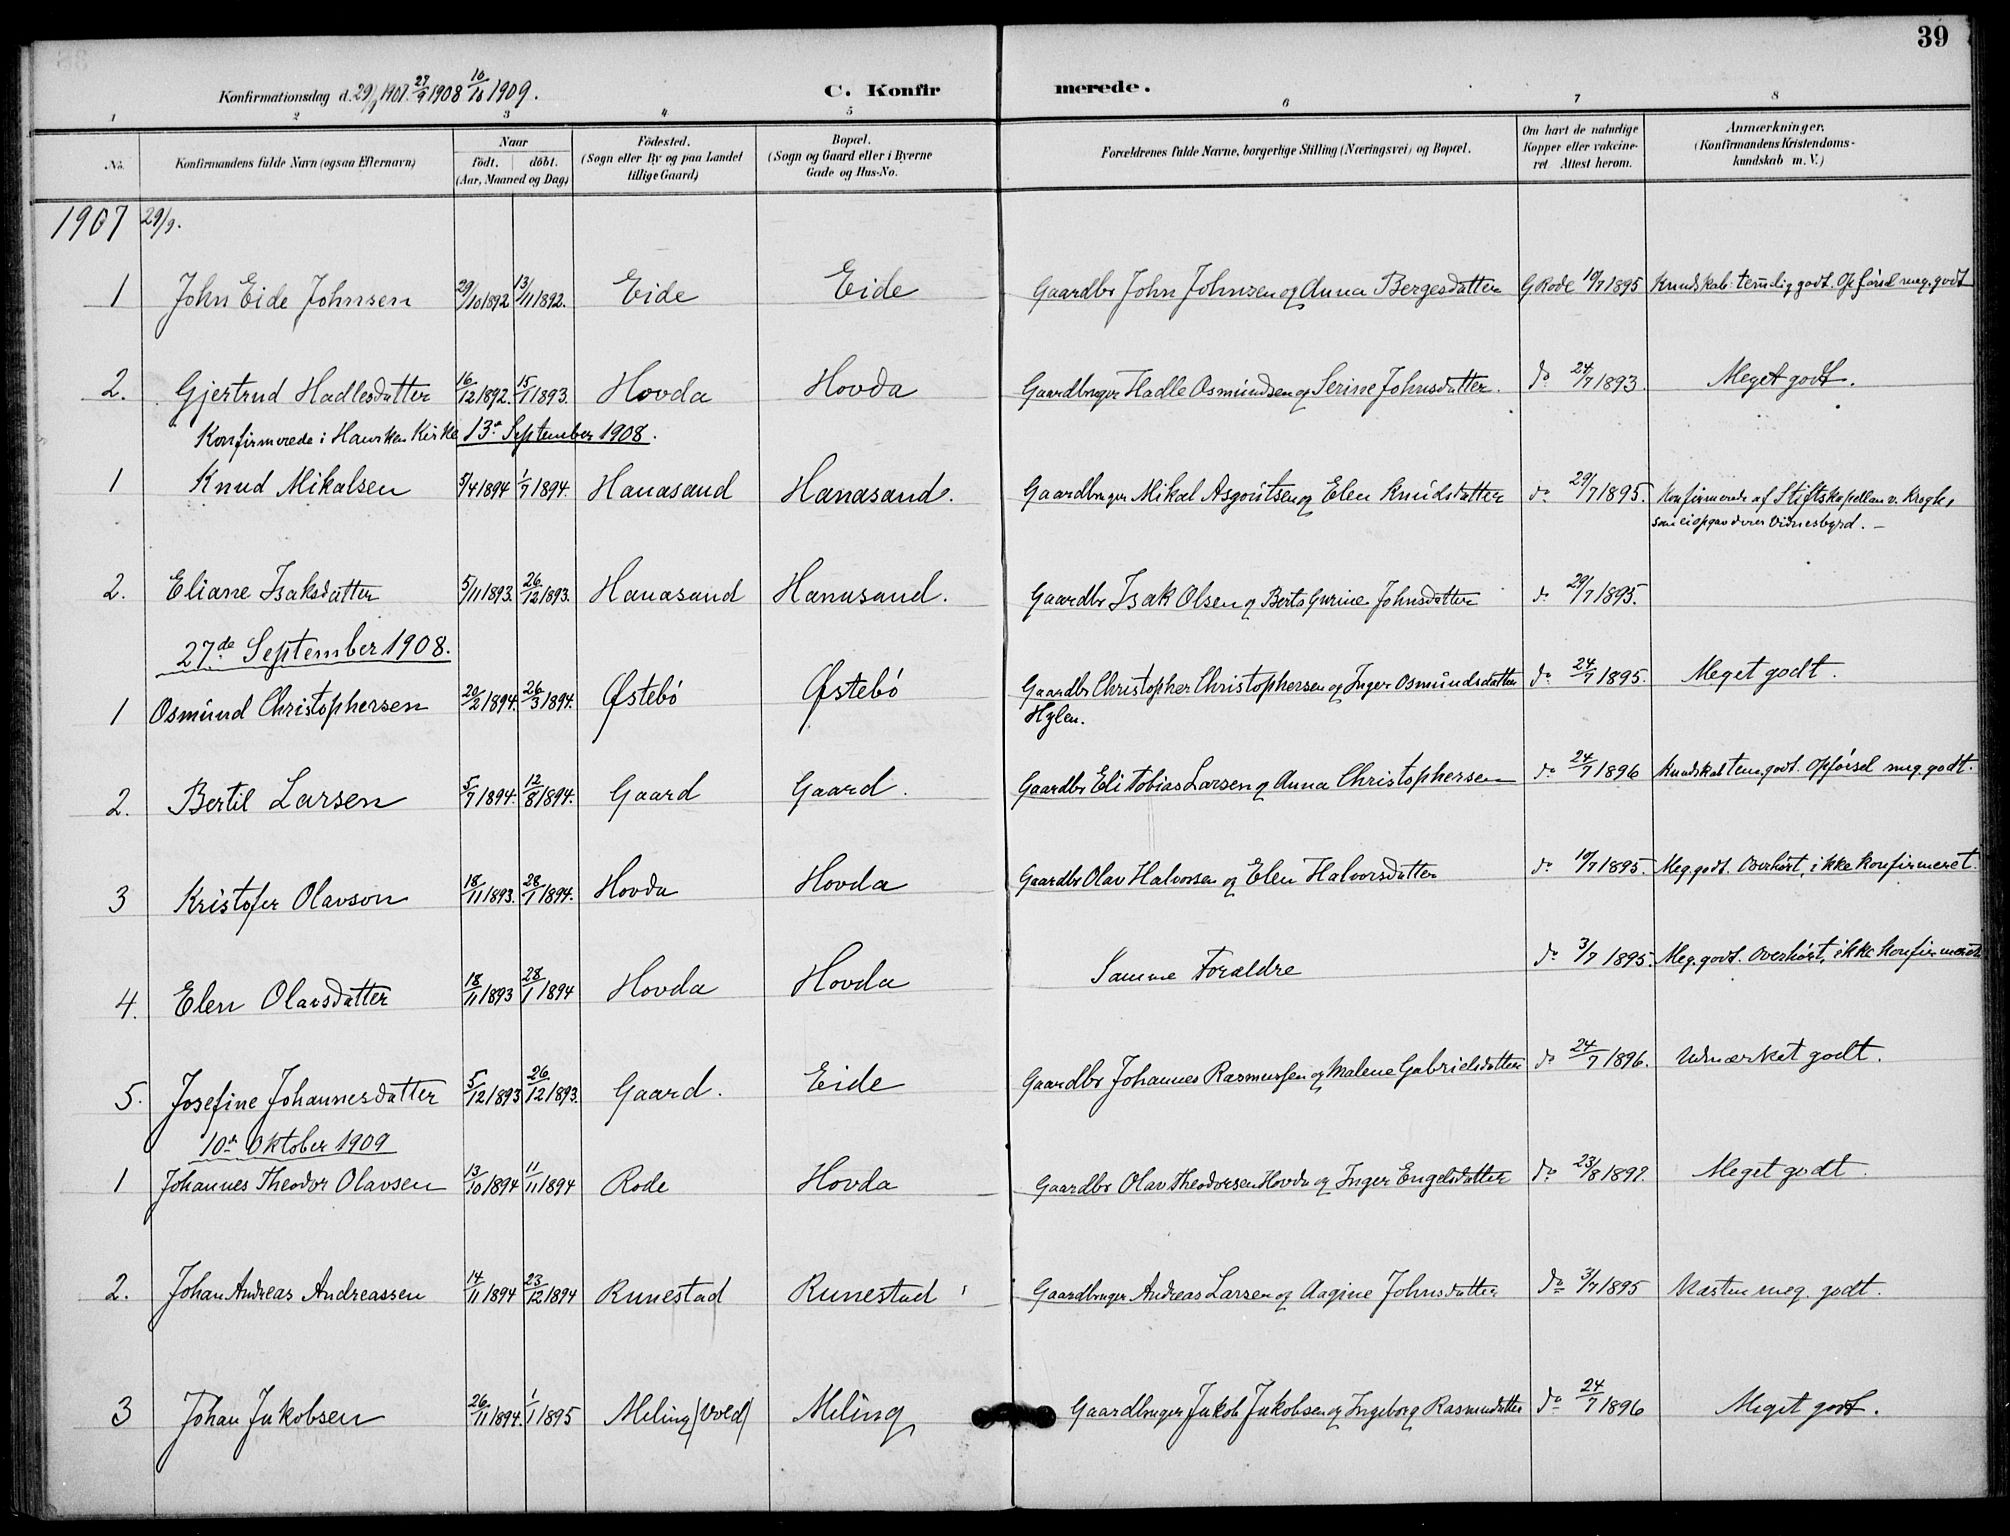 39
Konfirmationsdag d. 29/9 1907. 27/9 1908 10/10 1909.
C. Konfirmerede.
1 2 3 4 5 6 7 8
No. Konfirmandens fulde Navn (ogsaa Efternavn) Naar født. døbt. (Aar, Maaned og Dag) Fødested. (Sogn eller By og paa Landet tillige Gaard) Bopæl. (Sogn og Gaard eller i Byerne Gade og Hus-No. Forældrenes fulde Navne, borgerlige Stilling (Næringsvei) og Bopæl. Om havt de naturlige Kopper eller vakcineret. Attest herom. Anmærkninger. (Konfirmandens Kristendomskundskab m. V.)
1907 29/9.
1 John Eide Johnsen 29/10 1892 13/11 1892. Eide Eide Gaardbr John Johnsen og Anna Bergesdatter G Rode 10/7 1895 Kundskab temlig godt. Opførsel meg. godt
2. Gjertrud Hadlesdatter 16/12 1892. 15/1 1893. Hovda Hovda Gaardbruger Hadle Osmundsen og Serine Johnsdatter. do 24/7 1893. Meget godt.
Konfirmerede i Hausken Kirke 13de September 1908.
1 Knud Mikalsen 5/4 1894 1/7 1894. Hanasand Hanasand. Gaardbruger Mikal Asgautsen og Elen Knudsdatter do 29/7 1895. Konfirmerede af Stiftskapellan v. Krogh,
som ei opgav deres Vidnesbyrd. —
2. Eliane Isaksdatter 5/11 1893. 26/12 1893. Hanasand Hanasand. Gaardbr Isak Olsen og Berta Gurine Johnsdatter do 29/7 1895.
27de September 1908.
1 Osmund Christophersen 20/2 1894. 26/3 1894. Østebö Østebö Gaardbr Christopher Christophersen og Inger Osmundsdatter do 24/7 1895. Meget godt.
Hylen.
2. Bertil Larsen 5/7 1894. 12/8 1894. Gaard Gaard. Gaardbr Eli Tobias Larsen og Anna Christophersen do 24/7 1896 Kundskab tem. godt. Opførsel meg. godt.
3 Kristofer Olavson 18/11 1893. 28/1 1894. Hovda Hovda Gaardbr Olav Halvorsen og Elen Halvorsdatter do 10/7 1895. Meg. godt. Overhørt, ikke konfirmeret.
4. Elen Olavsdatter 18/11 1893 28/1 1894 Hovda Hovda Samme Forældre do 3/7 1895. Meg. godt. Overhørt, ikke konfirmeret
5. Josefine Johannesdatter 5/12 1893 26/12 1893. Gaard. Eide Gaardbr Johannes Rasmussen og Malene Gabrielsdatter do 24/7 1896. Udmærket godt.
10de Oktober 1909
1 Johannes Theodor Olavsen 13/10 1894 11/11 1894 Rode Hovda Gaardbr Olav Theodorsen Hovda og Inger Engelsdatter do 23/8 1897. Meget godt.
2. Johan Andreas Andreassen 14/11 1894 23/12 1894 Runestad Runestad Gaardbruger Andreas Larsen og Aagine Johnsdatter do 3/7 1895 Næsten meg. godt.
3 Johan Jakobsen 26/11 1894. 1/1 1895 Meling (Vold) Meling Gaardbruger Jakob Jakobsen og Ingeborg Rasmusdatter do 24/7 1896 Meget godt.